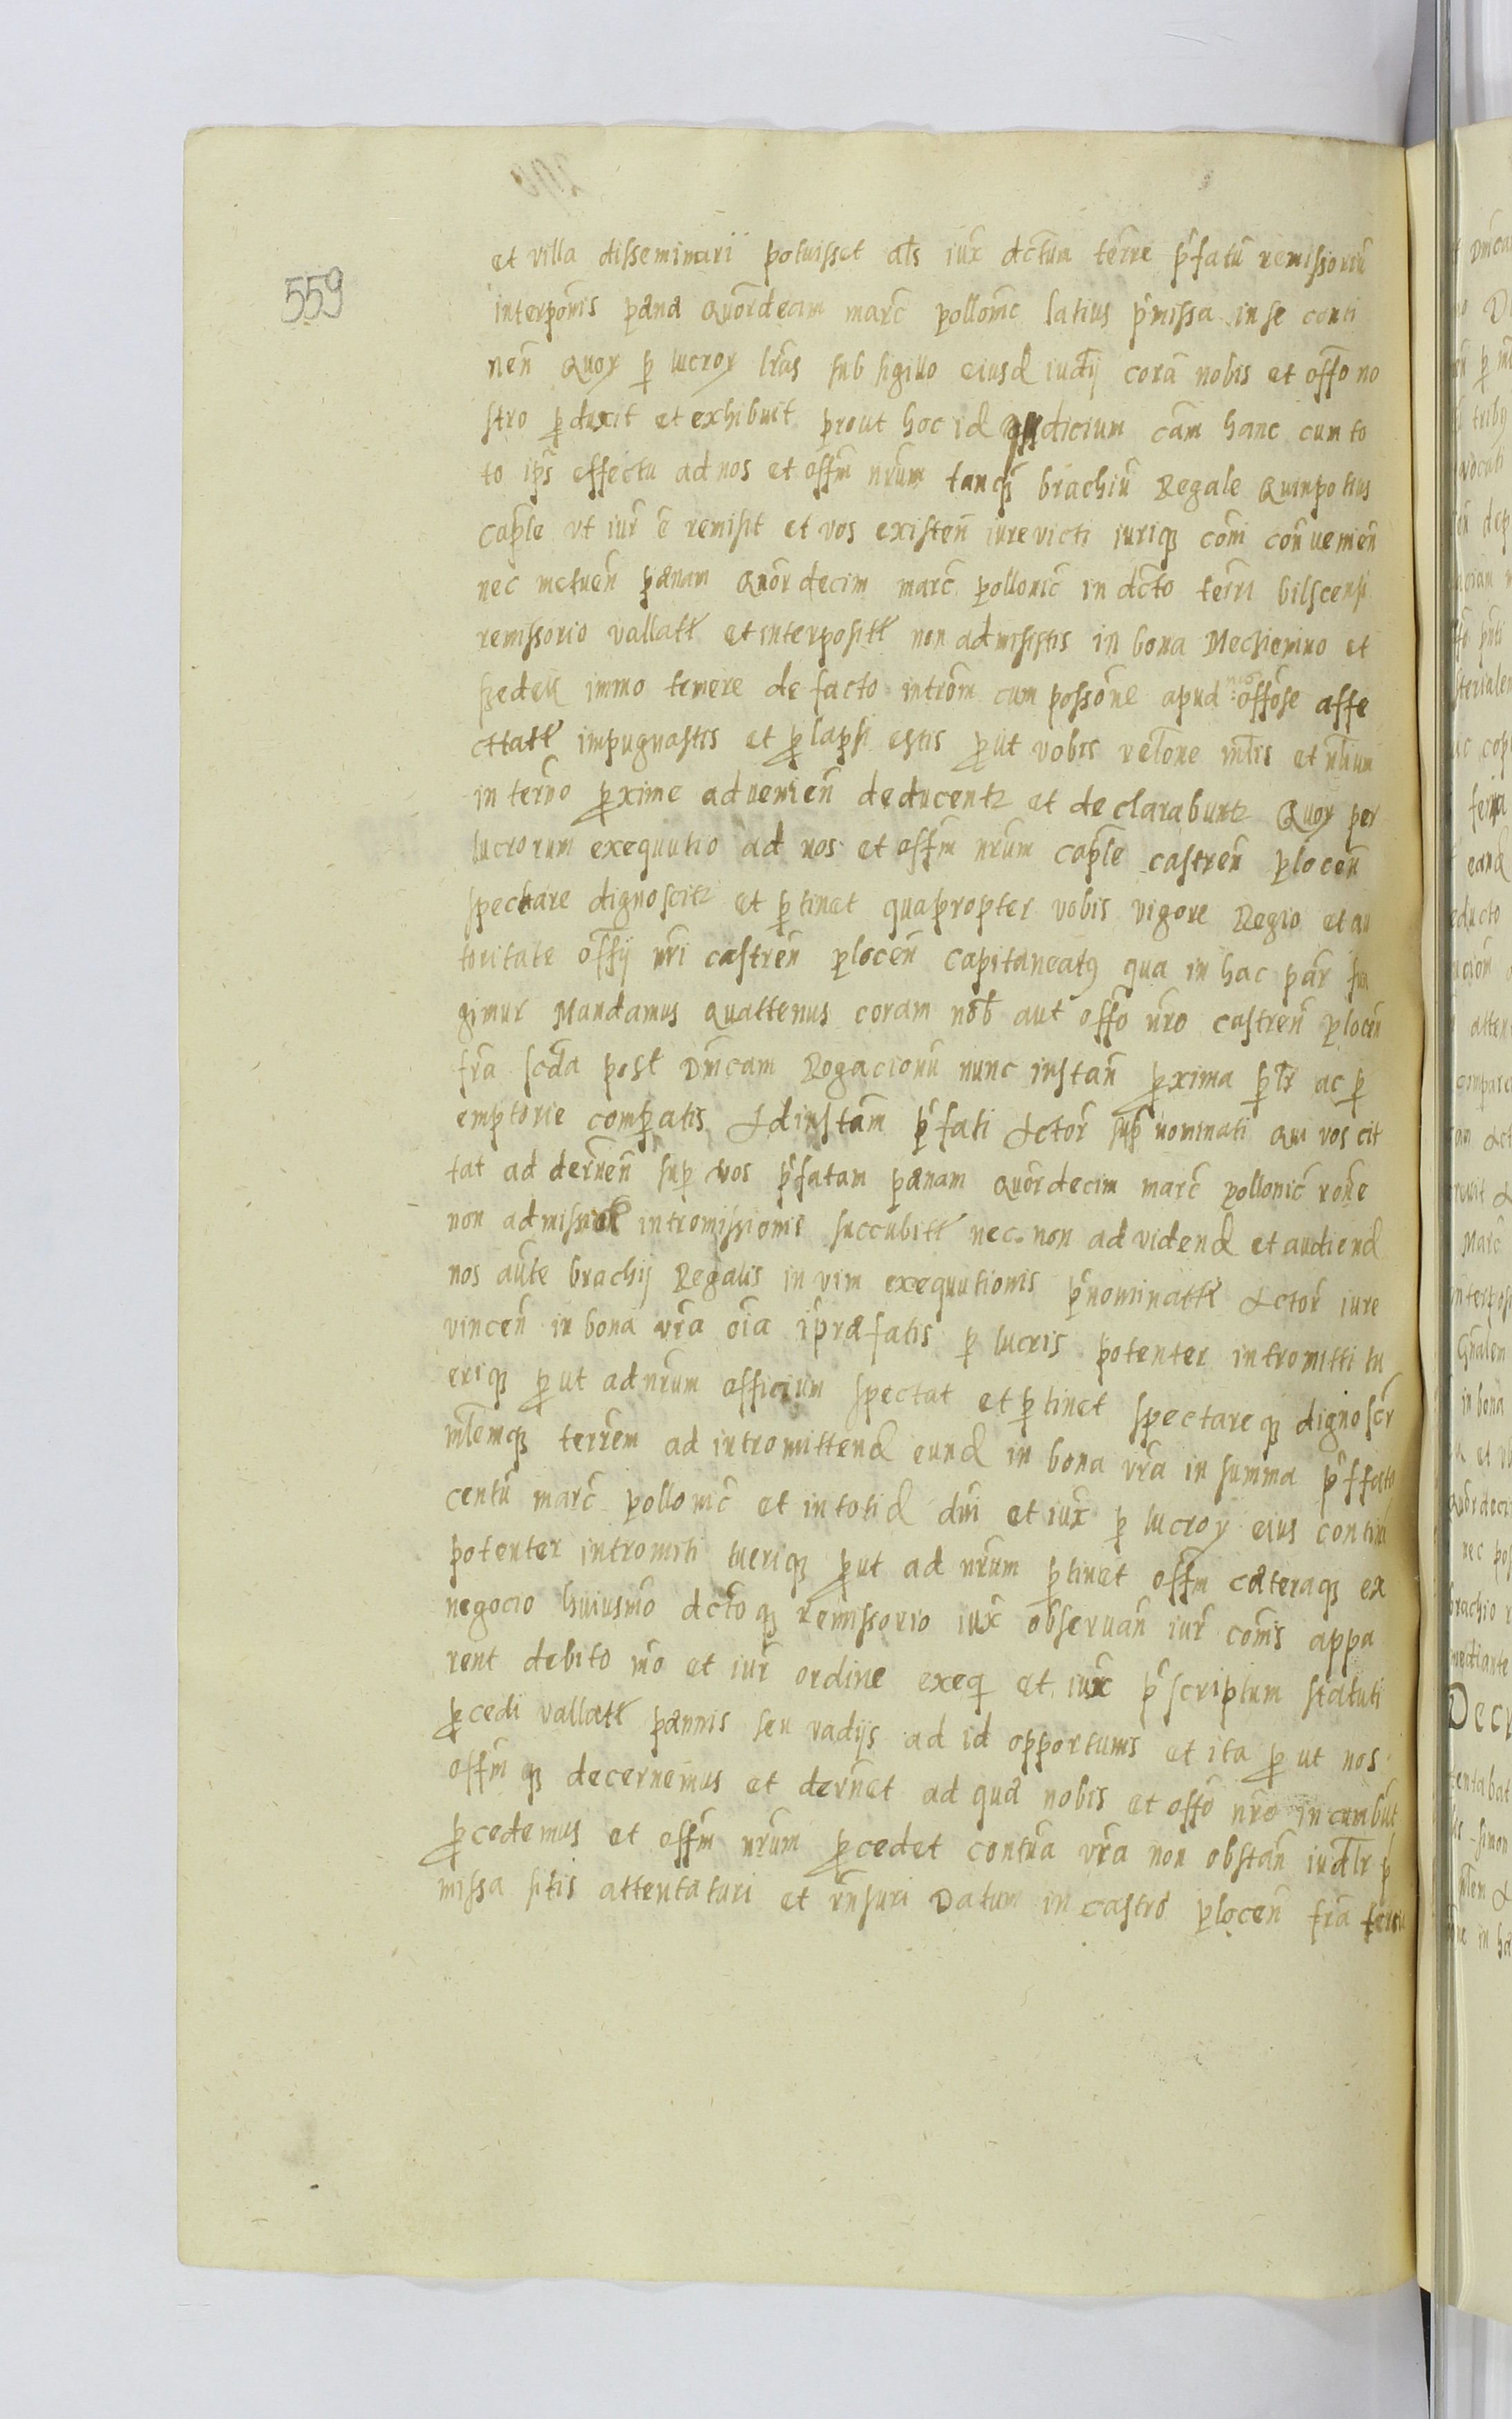 559
et villa disseminari potuisset als iux dctum terre pfatu remissoriu
interponis pæna quordecim marc pollonic latius pmissa in se conti
nen quor p lucror lras sub sigillo eiusd iudij cora nobis et offo no
stro pduxit et exhibuit prout hoc id iudicium cam hanc cum to
to ips effectu ad nos et offm nrum tanq brachiu Regale Quinpotius
caple vt iur e remisit et vos existen iure victi iuriq comi conuenien
nec metuen pænam quordecim marc pollonic in dcto terri bilscensi
remissorio vallatt et interpositt non admisistis in bona Mechiemino et
immo temere de facto introm cum possone apud offose affe
cttatt impugnastis et plapsi estis put vobis velone mlis et nlium
in terno pxime aduenien deducentz et declarabuntz Quor per
lucrorum exequutio ad nos et offm nrum caple castren plocen
spectare dignoscitz et ptinet quapropter vobis vigore Regio et au
toritate offij nri castren plocen capitaneatq qua in hac par fun
gimur Mandamus quattenus coram nob aut offo nro castren plocen
fra scda post Dnicam Rogacionu nunc instan pxima plr ac p
emptorie compatis Ad instam pfati Actor sup nominati qui vos cit
tat ad dernen sup vos pfatam pænam quordecim marc pollonic rone
non admiss intromissionis succubitt nec non ad vidend et audiend
nos aute brachij Regalis in vim exequutionis pnominatt Actor iure
vincen in bona vra oia ipræfatis p lucris potenter intromitti tu
eriq put ad nrum officium spectat et ptinet spectareq dignoscr
mlemq terrem ad intromittend eund in bona vra in summa pffato
centu marc pollonic et in totid dni et iux p lucror eius contin
potenter intromiti tueriq put ad nrum ptinet offm cæteraq ex
negocio huiusmo dctoq remissorio iux obseruan iur comis appa
rent debito mo et iur ordine exeq et iux pscriptum statuti
pcedi vallatt pænnis seu vadijs ad id opportunis et ita put nos
offm q decernemus et dernet ad qua nobis et offo nro incumbut
pcedemus et offm nrum pcedet contra vra non obstan iudlr p
missa sitis attentaturi et rnsuri Datum in castro plocen fra tercia